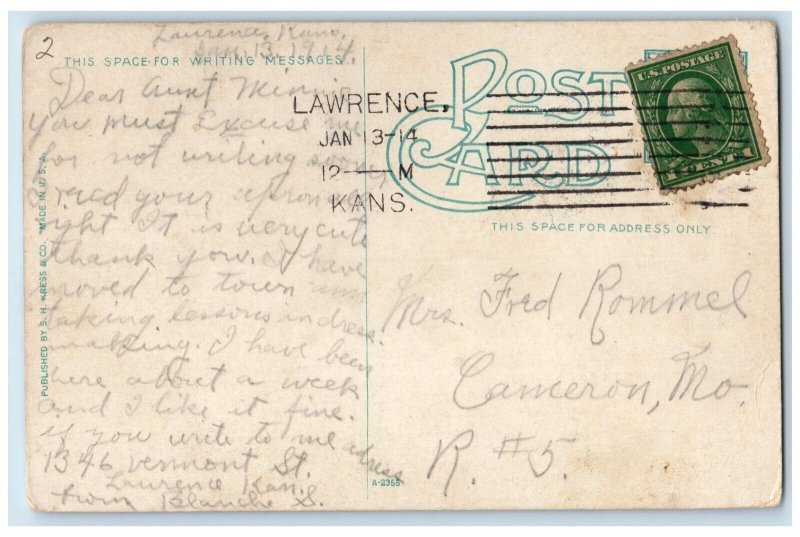 2
Lawrence, Kans.
Jan. 13, 1914.
THIS SPACE FOR WRITING MESSAGES
Dear Aunt Minnie
You must Excuse me
for not writing sooner
read your apron
right It is very cute
thank you. I have
moved to town
taking lessons in dress
making. I have been
here about a week
and I like it fine.
if you write to me adress
1346 Vermont St.
Lawrence Kan.
from Blanche S.
PUBLISHED BY S. H. KRESS & CO. MADE IN U. S. A.
POST CARD
LAWRENCE,
JAN 13-14
12 — M
KANS.
U.S. POSTAGE
1 CENT 1
THIS SPACE FOR ADDRESS ONLY
Mrs. Fred Rommel
Cameron, Mo.
R. #5.
A-2355